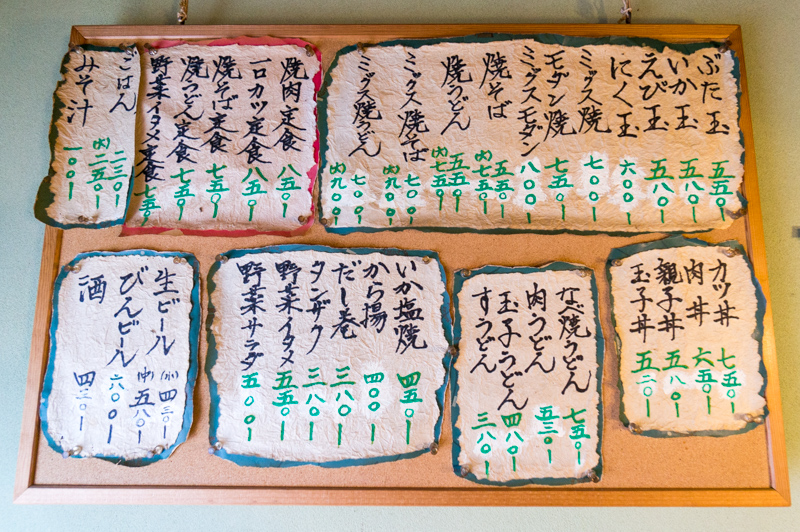 ぶた玉 五五〇ー
いか玉 五八〇ー
えび玉 五八〇ー
にく玉 六〇〇ー
ミックス焼 七〇〇ー
モダン焼 七五〇ー
ミックスモダン 八〇〇ー
焼そば 五五〇ー (大)七五〇ー
焼うどん 五五〇ー (大)七五〇ー
ミックス焼そば 七〇〇ー (大)九〇〇ー
ミックス焼うどん 七〇〇ー (大)九〇〇ー
焼肉定食 八五〇ー
一口カツ定食 八五〇ー
焼そば定食 七五〇ー
焼うどん定食 七五〇ー
野菜イタメ定食 七五〇ー
ごはん 二三〇ー (大)二五〇ー
みそ汁 一〇〇ー
カツ丼 七五〇ー
肉丼 六五〇ー
親子丼 五八〇ー
玉子丼 五二〇ー
なべ焼うどん 七五〇ー
肉うどん 五三〇ー
玉子うどん 四八〇ー
すうどん 三八〇ー
いか塩焼 四五〇ー
から揚 四〇〇ー
だし巻 三八〇ー
タンザク 三八〇ー
野菜イタメ 五五〇ー
野菜サラダ 五〇〇ー
生ビール (小)四三〇ー (中)五八〇ー
びんビール 六〇〇ー
酒 四三〇ー